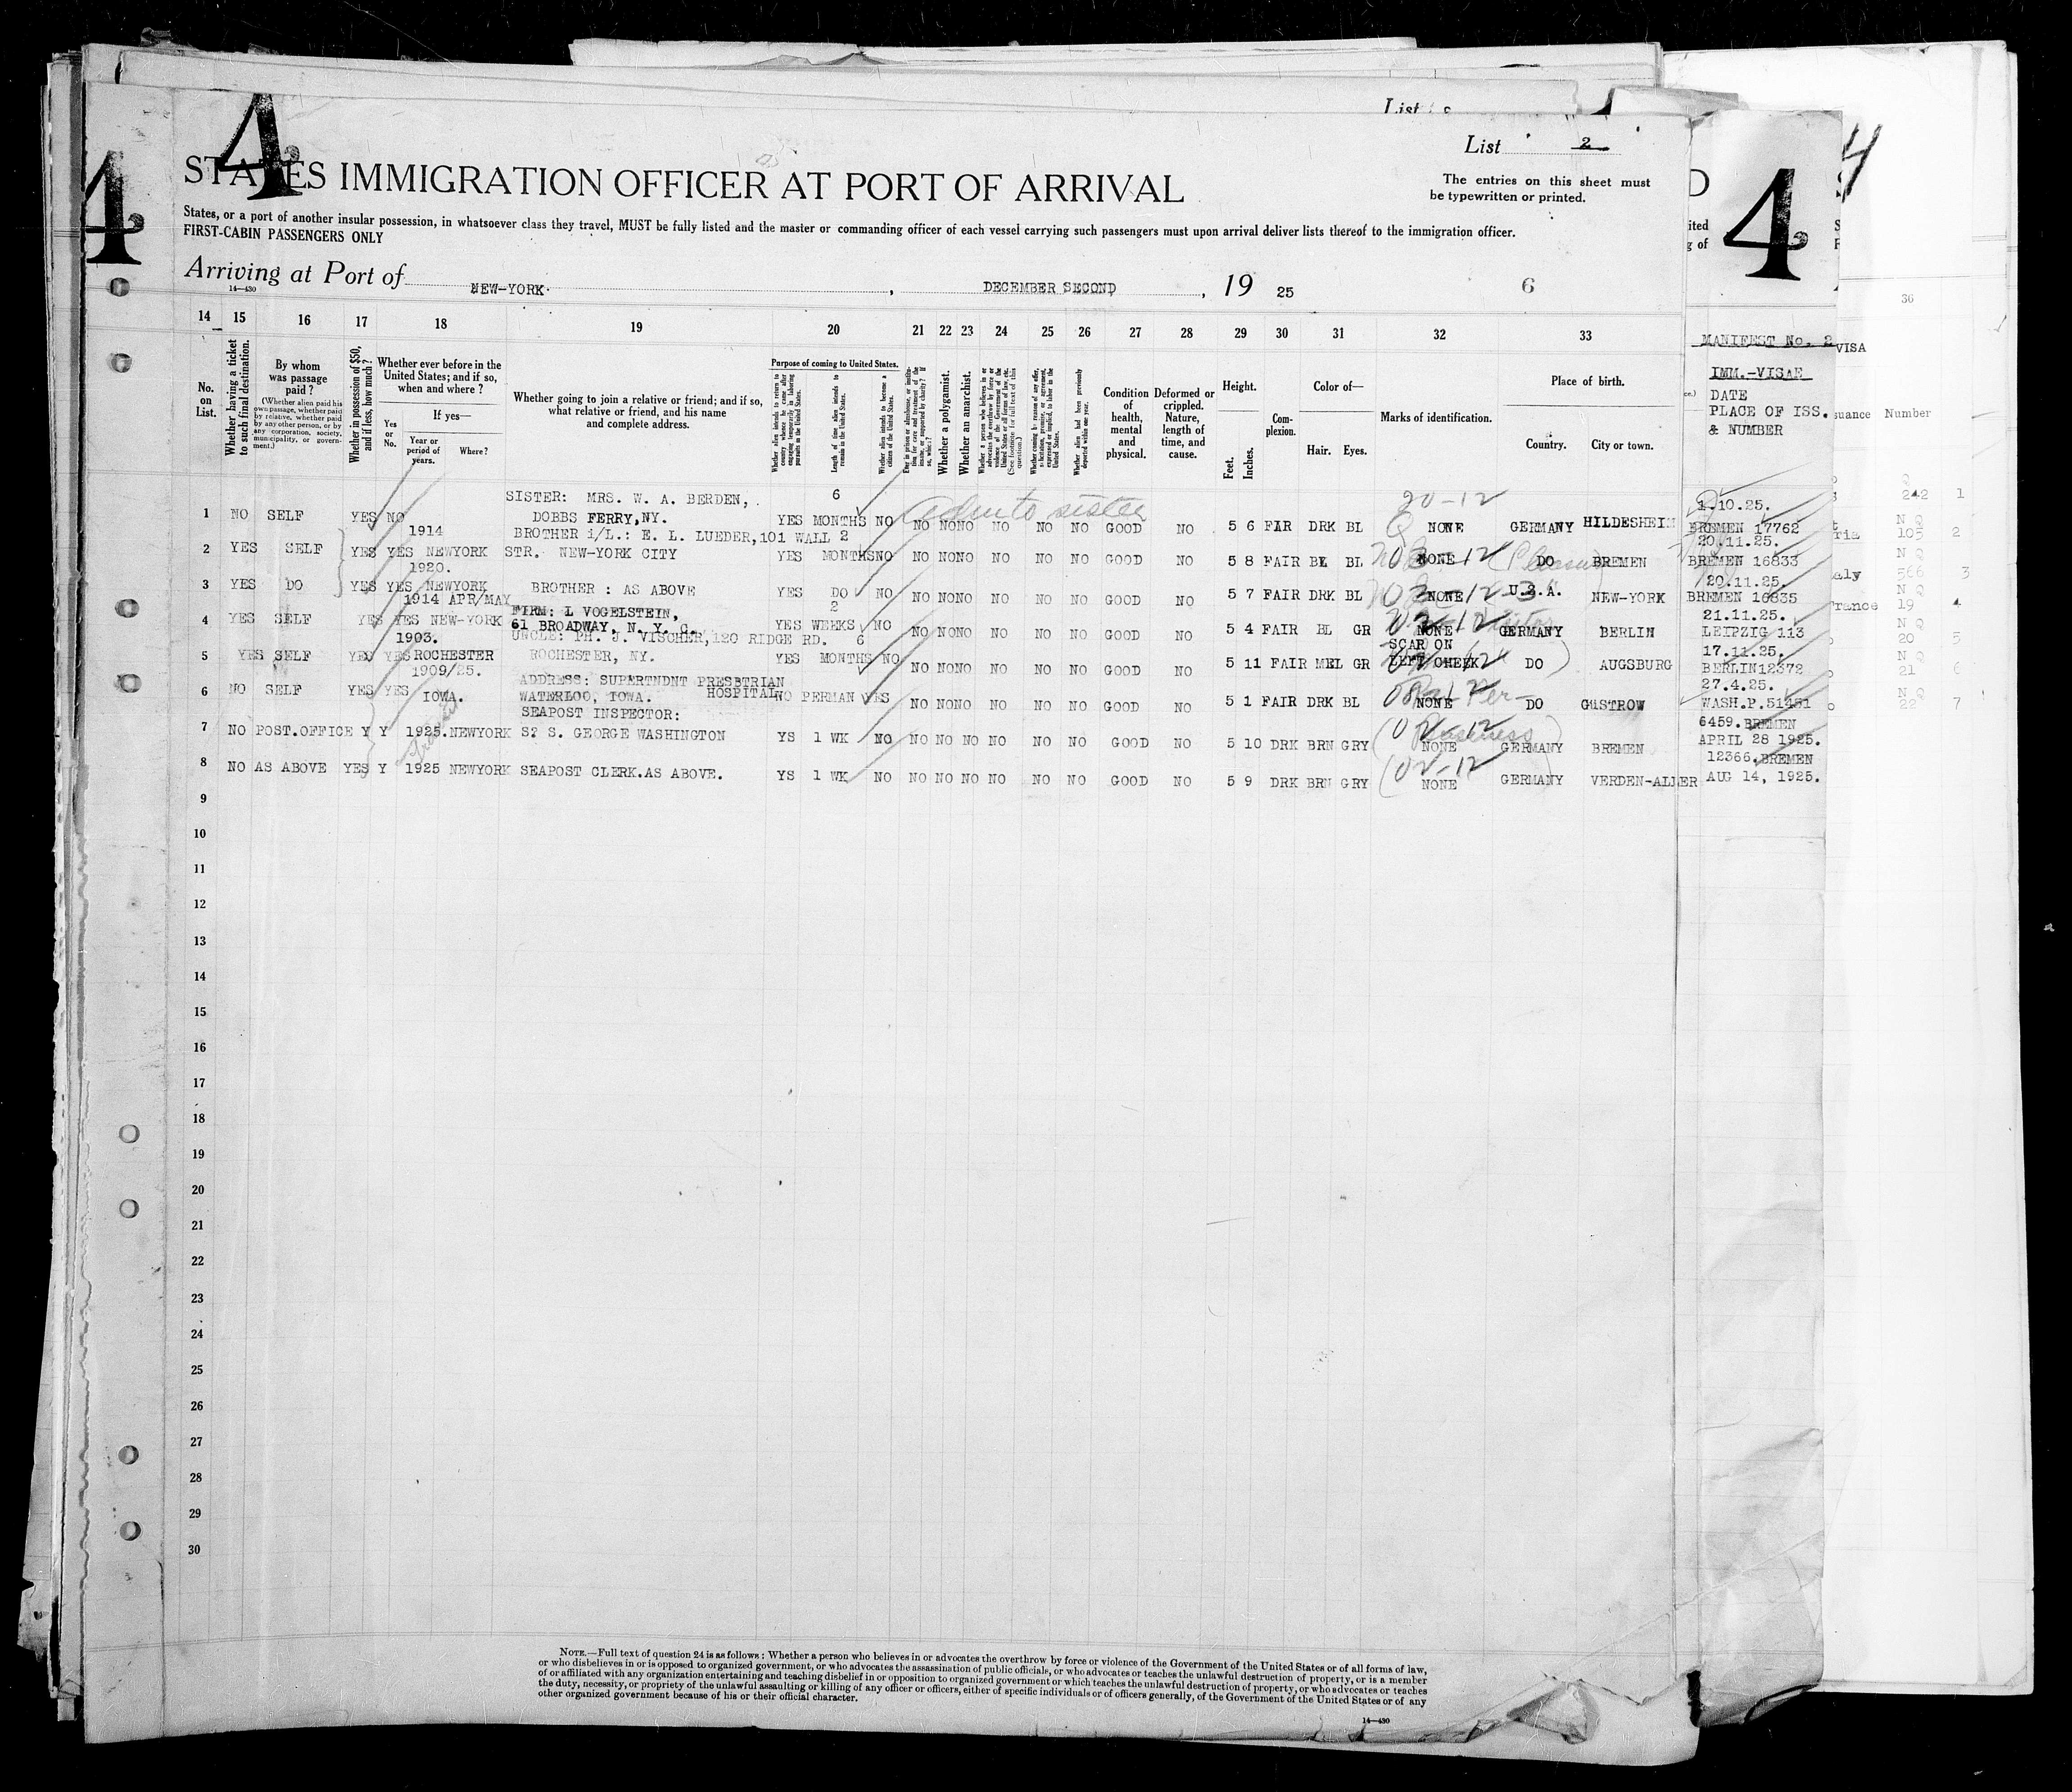 4
4
4
List
List 2
The entries on this sheet must
be typewritten or printed.
STATES IMMIGRATION OFFICER AT PORT OF ARRIVAL
States, or a port of another insular possession, in whatsoever class they travel, MUST be fully listed and the master or commanding officer of each vessel carrying such passengers must upon arrival deliver lists thereof to the immigration officer.
FIRST-CABIN PASSENGERS ONLY
Arriving at Port of NEW-YORK. , DECEMBER SECOND , 19 25 6
14—430
14 15 16 17 18 19 20 21 22 23 24 25 26 27 28 29 30 31 32 33 36
No. on List.
Whether having a ticket to such final destination.
By whom was passage paid?
(Whether alien paid his own passage, whether paid by relative, whether paid by any other person, or by any corporation, society, municipality, or government.)
Whether in possession of $50, and if less, how much?
Whether ever before in the United States; and if so, when and where?
Yes or No.
If yes—
Year or period of years.
Where?
Whether going to join a relative or friend; and if so, what relative or friend, and his name and complete address.
Purpose of coming to United States.
Length of time alien intends to remain in the United States.
Whether alien intends to become a citizen of the United States.
Whether a polygamist.
Whether an anarchist.
Condition of health, mental and physical.
Deformed or crippled. Nature, length of time, and cause.
Height.
Feet. Inches.
Complexion.
Color of—
Hair. Eyes.
Marks of identification.
Place of birth.
Country. City or town.
MANIFEST No. 2
IMM.-VISAE
DATE
PLACE OF ISS.
& NUMBER
VISA
Number
SISTER: MRS. W. A. BERDEN, 6 20-12 1.10.25.
1 NO SELF YES NO DOBBS FERRY,NY. YES MONTHS NO NO NO NO NO NO NO GOOD NO 5 6 FAIR DRK BL NONE GERMANY HILDESHEIM BREMEN 17762 242 1
1914 BROTHER i/L.: E. L. LUEDER,101 WALL 2 20.11.25.
2 YES SELF YES YES NEWYORK STR. NEW-YORK CITY YES MONTHS NO NO NO NO NO NO NO GOOD NO 5 8 FAIR BL BL NONE DO BREMEN BREMEN 16833 105 2
1920. 20.11.25.
3 YES DO YES YES NEWYORK BROTHER : AS ABOVE YES DO NO NO NO NO NO NO NO GOOD NO 5 7 FAIR DRK BL NONE U.S.A. NEW-YORK BREMEN 16835 566 3
1914 APR/MAY FIRM: L VOGELSTEIN, 2 21.11.25.
4 YES SELF YES YES NEW-YORK 61 BROADWAY, N. Y. C. YES WEEKS NO NO NO NO NO NO NO GOOD NO 5 4 FAIR BL GR NONE GERMANY BERLIN LEIPZIG 113 19 4
1903. UNCLE: PH. J. VISCHER,120 RIDGE RD. 6 SCAR ON 17.11.25.
5 YES SELF YES YES ROCHESTER ROCHESTER, NY. YES MONTHS NO NO NO NO NO NO NO GOOD NO 5 11 FAIR MEL GR LEFT CHEEK DO AUGSBURG BERLIN12372 20 5
1909/25. ADDRESS: SUPARTNDNT PRESBTRIAN 27.4.25.
6 NO SELF YES YES IOWA. WATERLOO, IOWA. HOSPITAL NO PERMAN YES NO NO NO NO NO NO GOOD NO 5 1 FAIR DRK BL NONE DO GUSTROW WASH.P.51451 21 6
SEAPOST INSPECTOR: 6459.BREMEN
7 NO POST.OFFICE Y Y 1925.NEWYORK S? S. GEORGE WASHINGTON YS 1 WK NO NO NO NO NO NO NO GOOD NO 5 10 DRK BRN GRY NONE GERMANY BREMEN APRIL 28 1925. 22 7
12366.BREMEN
8 NO AS ABOVE YES Y 1925 NEWYORK SEAPOST CLERK.AS ABOVE. YS 1 WK NO NO NO NO NO NO NO GOOD NO 5 9 DRK BRN GRY NONE GERMANY VERDEN-ALLER AUG 14, 1925.
9
10
11
12
13
14
15
16
17
18
19
20
21
22
23
24
25
26
27
28
29
30
NOTE.—Full text of question 24 is as follows: Whether a person who believes in or advocates the overthrow by force or violence of the Government of the United States or of all forms of law,
or who disbelieves in or is opposed to organized government, or who advocates the assassination of public officials, or who advocates or teaches the unlawful destruction of property, or is a member
of or affiliated with any organization entertaining and teaching disbelief in or opposition to organized government or which teaches the unlawful destruction of property, or who advocates or teaches
the duty, necessity, or propriety of the unlawful assaulting or killing of any officer or officers, either of specific individuals or of officers generally, of the Government of the United States or of any
other organized government because of his or their official character.
14—430